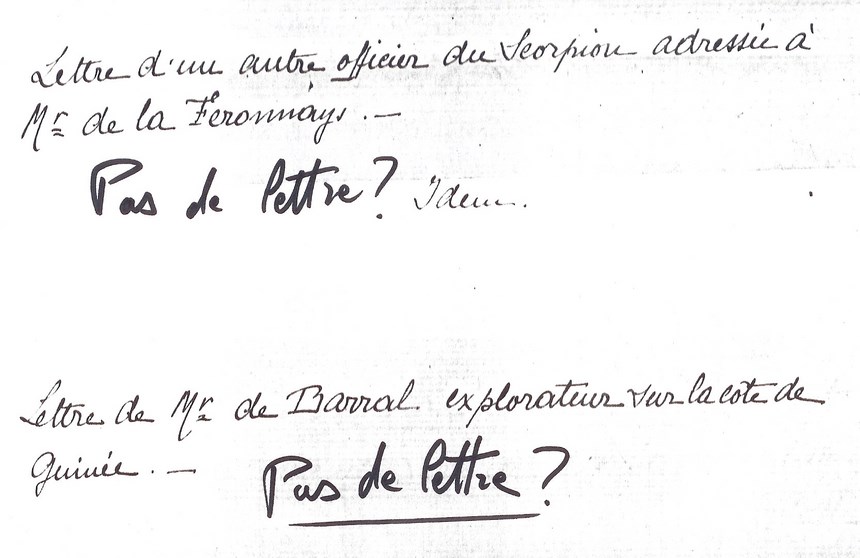 Lettre d'un autre officier du Scorpion adressée à
Mr de la Feronnays. —
Pas de lettre? Idem.
Lettre de Mr de Barral explorateur sur la côte de
Guinée. —
Pas de lettre?